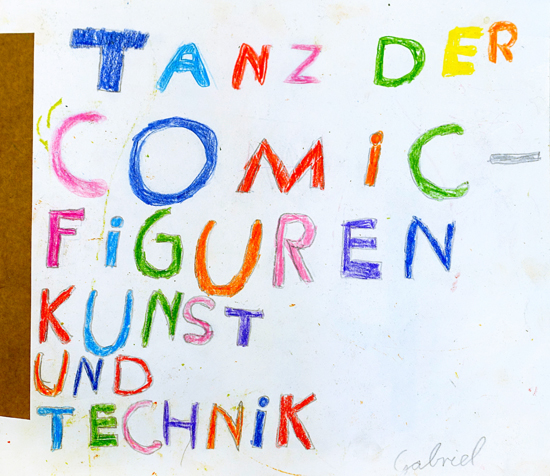 TANZ DER
COMIC-
FiGUREN
KUNST
UND
TECHNiK
Gabriel